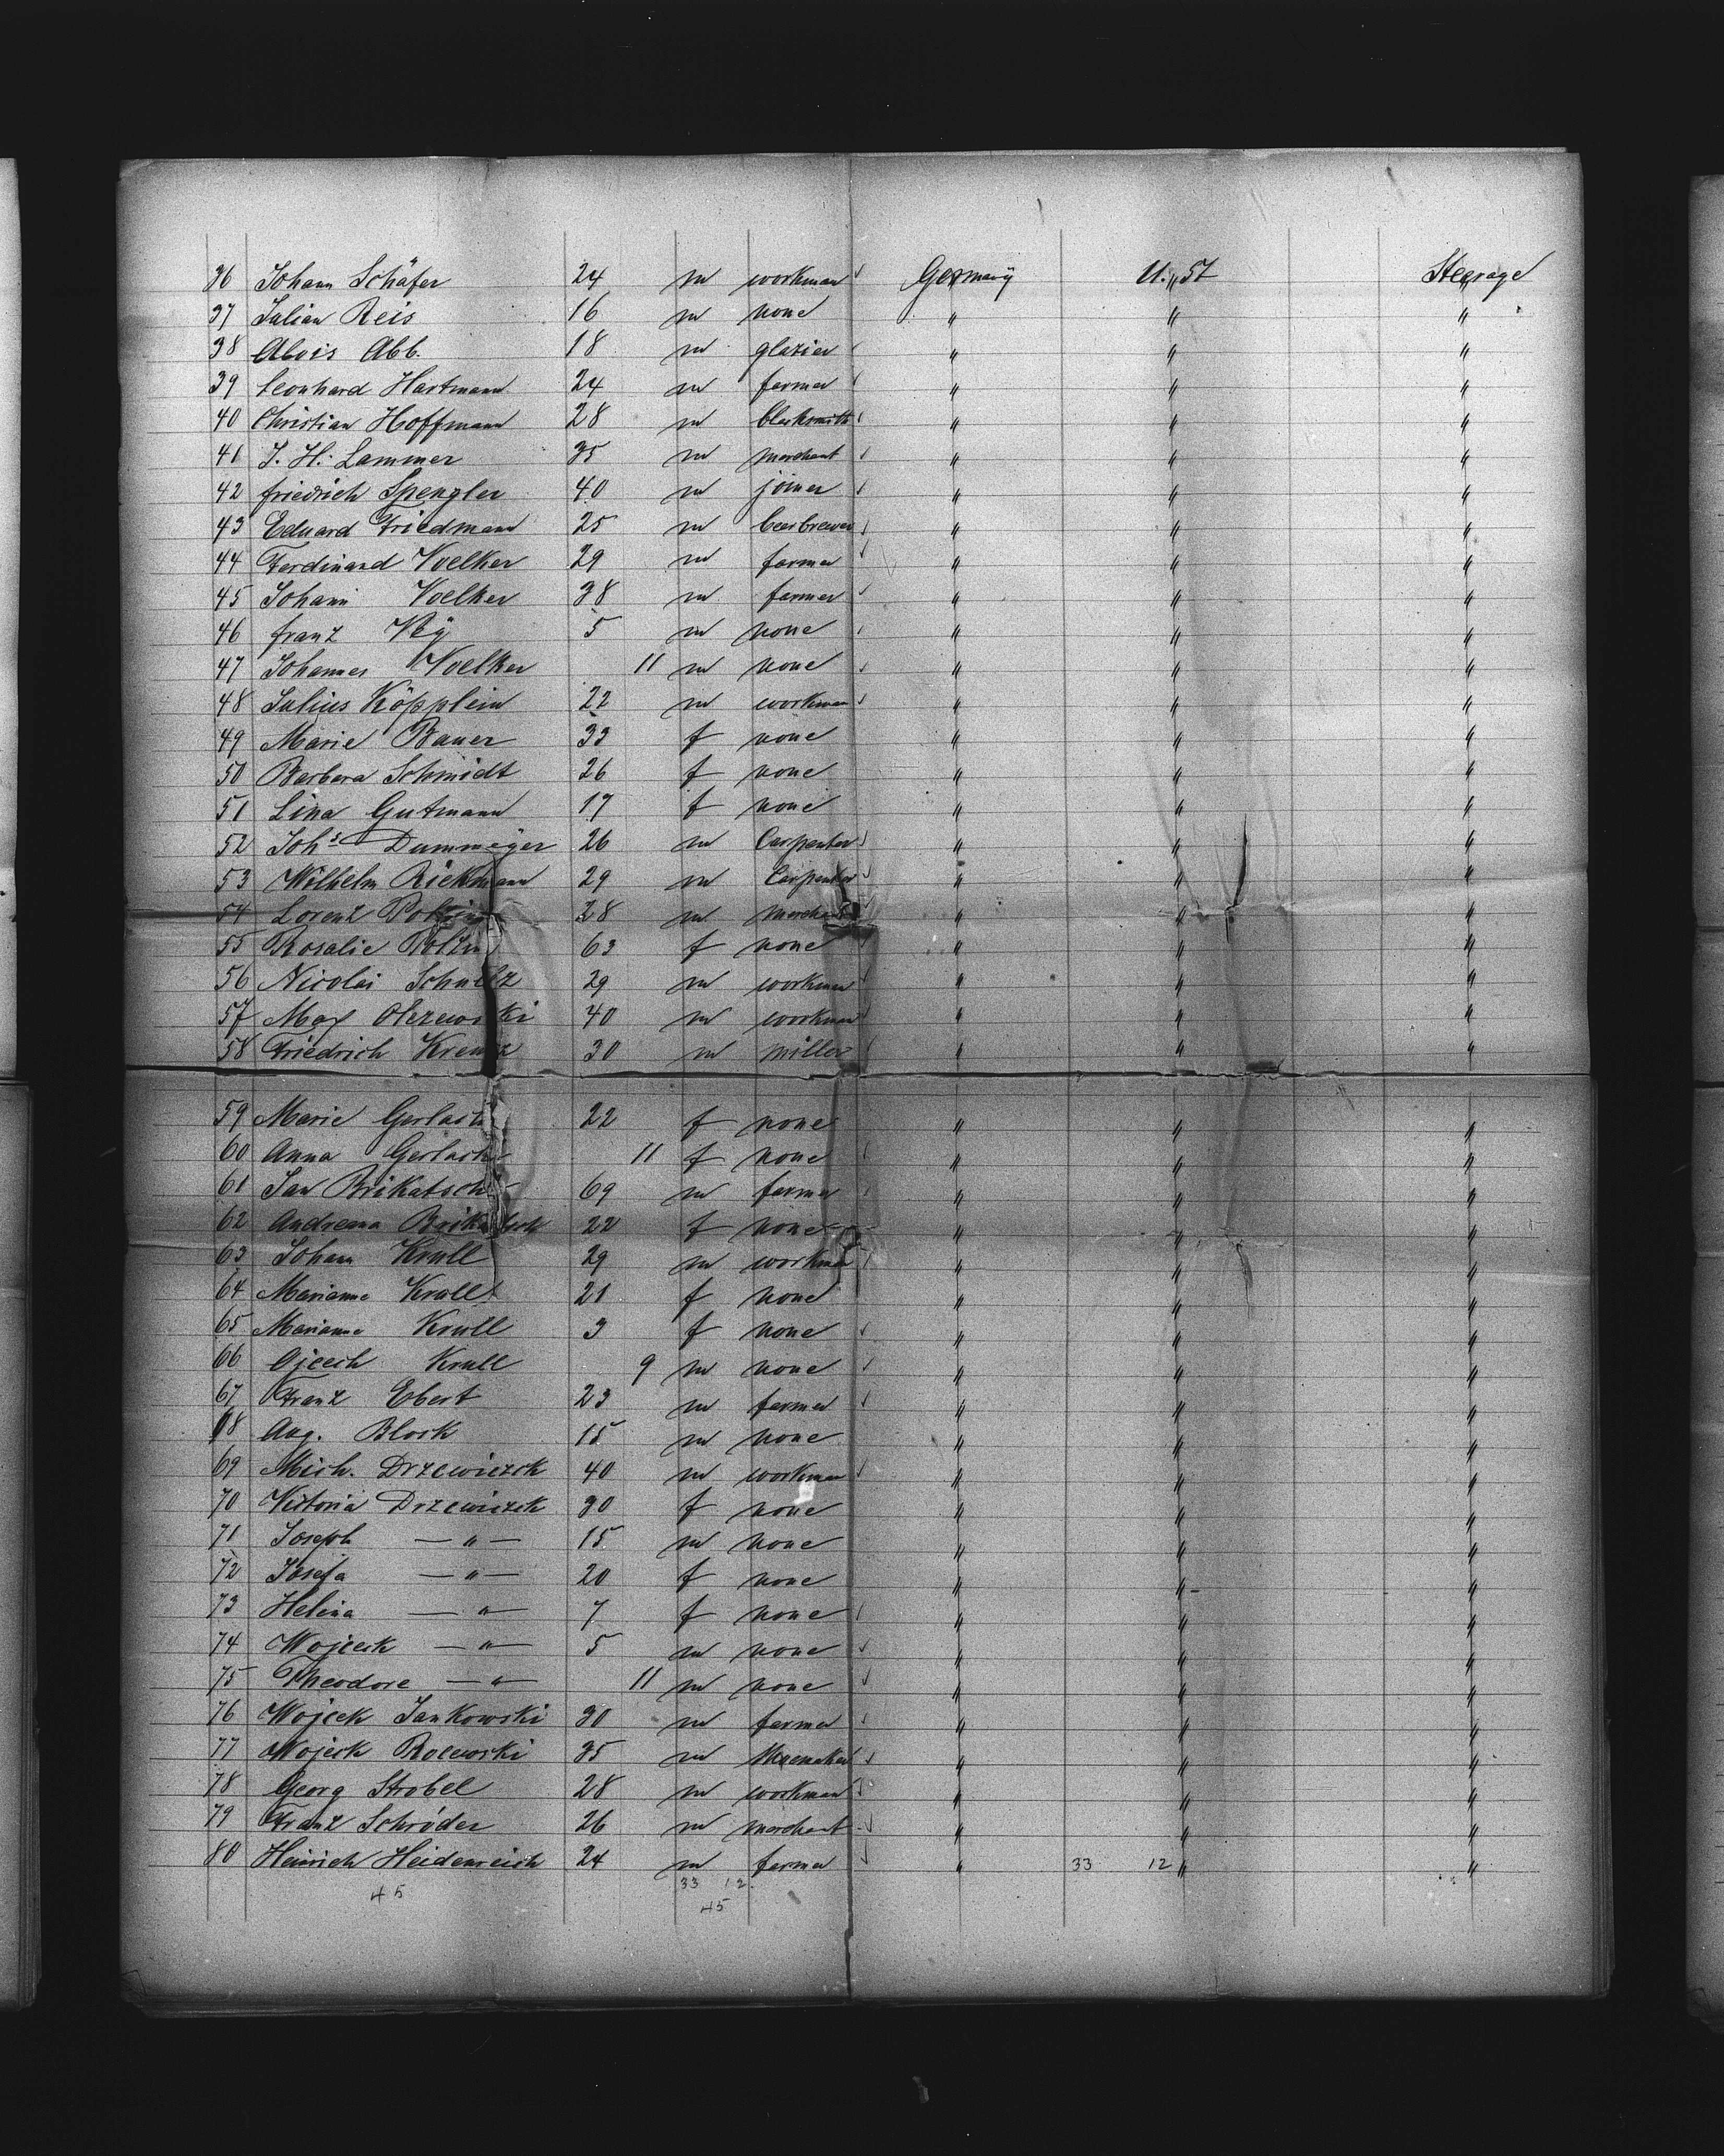 36 Johann Schäfer 24 m workman Germany U. St Steerage
37 Julian Reis 16 m none " " "
38 Alois Abb. 18 m glazier " " "
39 Leonhard Hartmann 24 m farmer " " "
40 Christian Hoffmann 28 m blacksmith " " "
41 J. H. Lammer 35 m merchant " " "
42 friedrich Spengler 40 m joiner " " "
43 Eduard Friedmann 25 m beerbrewer " " "
44 Ferdinand Voelker 29 m farmer " " "
45 Johann Voelker 38 m farmer " " "
46 franz 5 m none " " "
47 Johannes Voelker 11 m none " " "
48 Julius Köpplein 22 m workman " " "
49 Marie Bauer 33 f none " " "
50 Barbara Schmidt 26 f none " " "
51 Lina Gutmann 17 f none " " "
52 Johs Dummeyer 26 m Carpenter " " "
53 Wilhelm Rickmann 29 m Carpenter " " "
54 Lorenz 28 m merchant " " "
55 Rosalie 63 f none " " "
56 Nicolai Schultz 29 m workman " " "
57 Max 40 m workman " " "
58 Friedrich Kreutz 30 m miller " " "
59 Marie Gerlach 22 f none " " "
60 Anna Gerlach 11 f none " " "
61 Jan Brikatsch 69 m farmer " " "
62 Andrema 22 f none " " "
63 Johann Krull 29 m workman " " "
64 Marianne Krull 21 f none " " "
65 Marianne Krull 3 f none " " "
66 Ojcech Krull 9 m none " " "
67 Franz Ebert 23 m farmer " " "
68 Aug. Block 15 m none " " "
69 Mich. Drzewiezck 40 m workman " " "
70 Victoria Drzewiezck 30 f none " " "
71 Joseph — " — 15 m none " " "
72 Josefa — " — 20 f none " " "
73 Helina — " — 7 f none " " "
74 Wojceck — " — 5 m none " " "
75 Theodore — " — 11 m none " " "
76 Wojcek Jankowski 30 m farmer " " "
77 Wojeck Rolewski 35 m " " "
78 Georg Strobel 28 m workman " " "
79 Franz Schröder 26 m merchant " " "
80 Heinrich Heidenreich 24 m farmer " 33 12 " "
45 33 12.
45